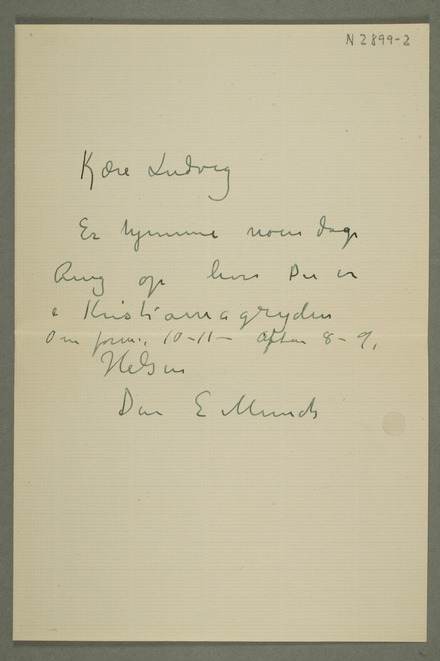 N 2899-2
Kjære Ludvig
Er hjemme noen dage
Ring op hvis Du er
i Kristianiagryden
Om form. 10-11- Aften 8-9,
Hilsen
Din E Munch